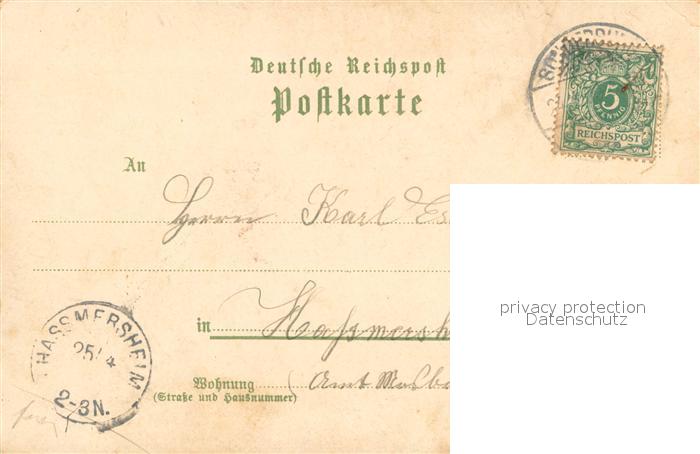 Deutsche Reichspost
Postkarte
5
PFENNIG
REICHSPOST
An
Herrn Karl Es
privacy protection
Datenschutz
in Hassmersh
HASSMERSHEIM
25/4
2-3N.
Wohnung (Amt Mosba
(Straße und Hausnummer)